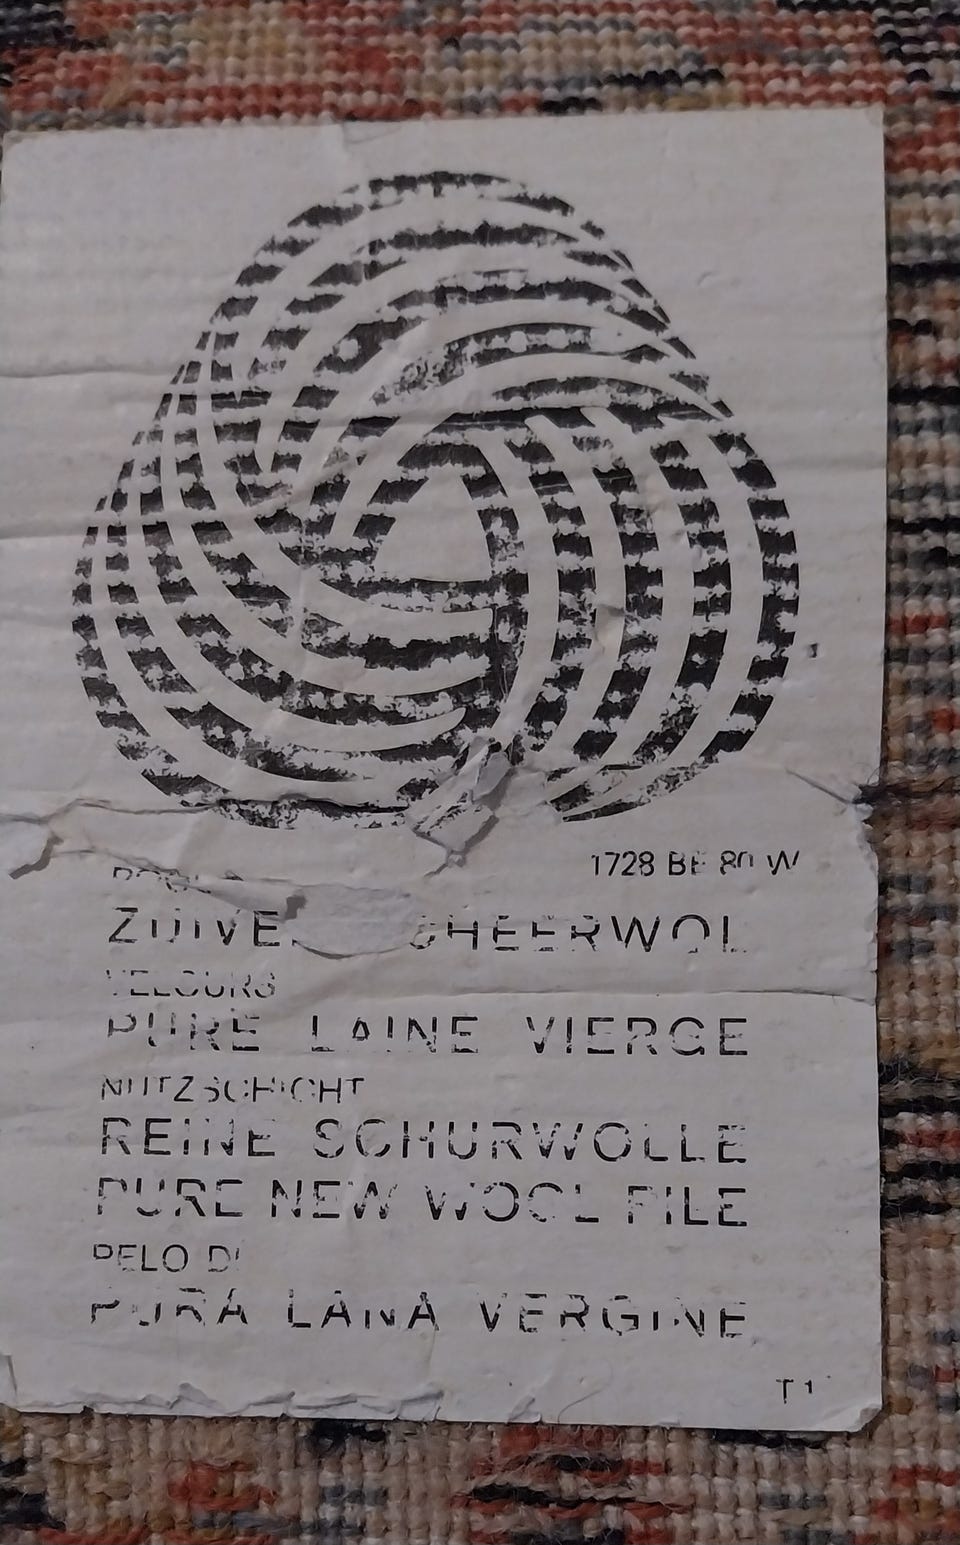 1728 BE 80 W
ZUIVE CHEERWOL
VELOURS
PURE LAINE VIERGE
NUTZSCHICHT
REINE SCHURWOLLE
PURE NEW WOOL PILE
PELO DI
PURA LANA VERGINE
T 1